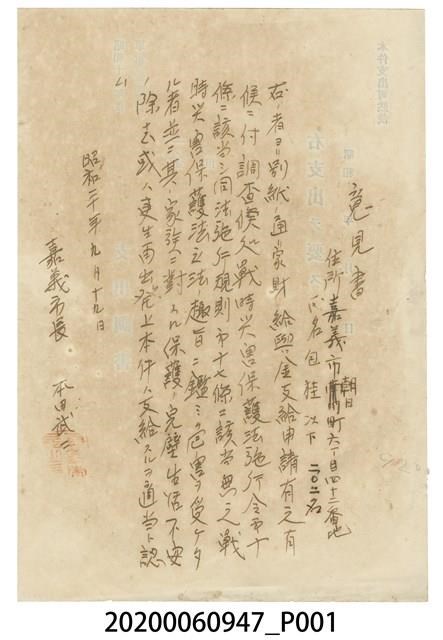 意見書
住所 嘉義市朝日町六丁目四十二番地
氏名 包桂 以下 二〇二名
右ノ者ヨリ別紙ノ通家財給與金支給申請有之有
候ニ付調査候処戦時災害保護法施行令第十
條ニ該当シ同法施行規則第十七條ニ該当無之戦
時災害保護法立法ノ趣旨ニ鑑ミ危害ヲ受ケタ
ル者並ニ其ノ家族ニ対スル保護ノ完璧生活不安
ノ除去或ハ更生再出発上本件ハ支給スルヲ適当ト認
ム
昭和二十年九月十九日
嘉義市長 本田
本件支出
昭和 日
右支出
20200060947_P001